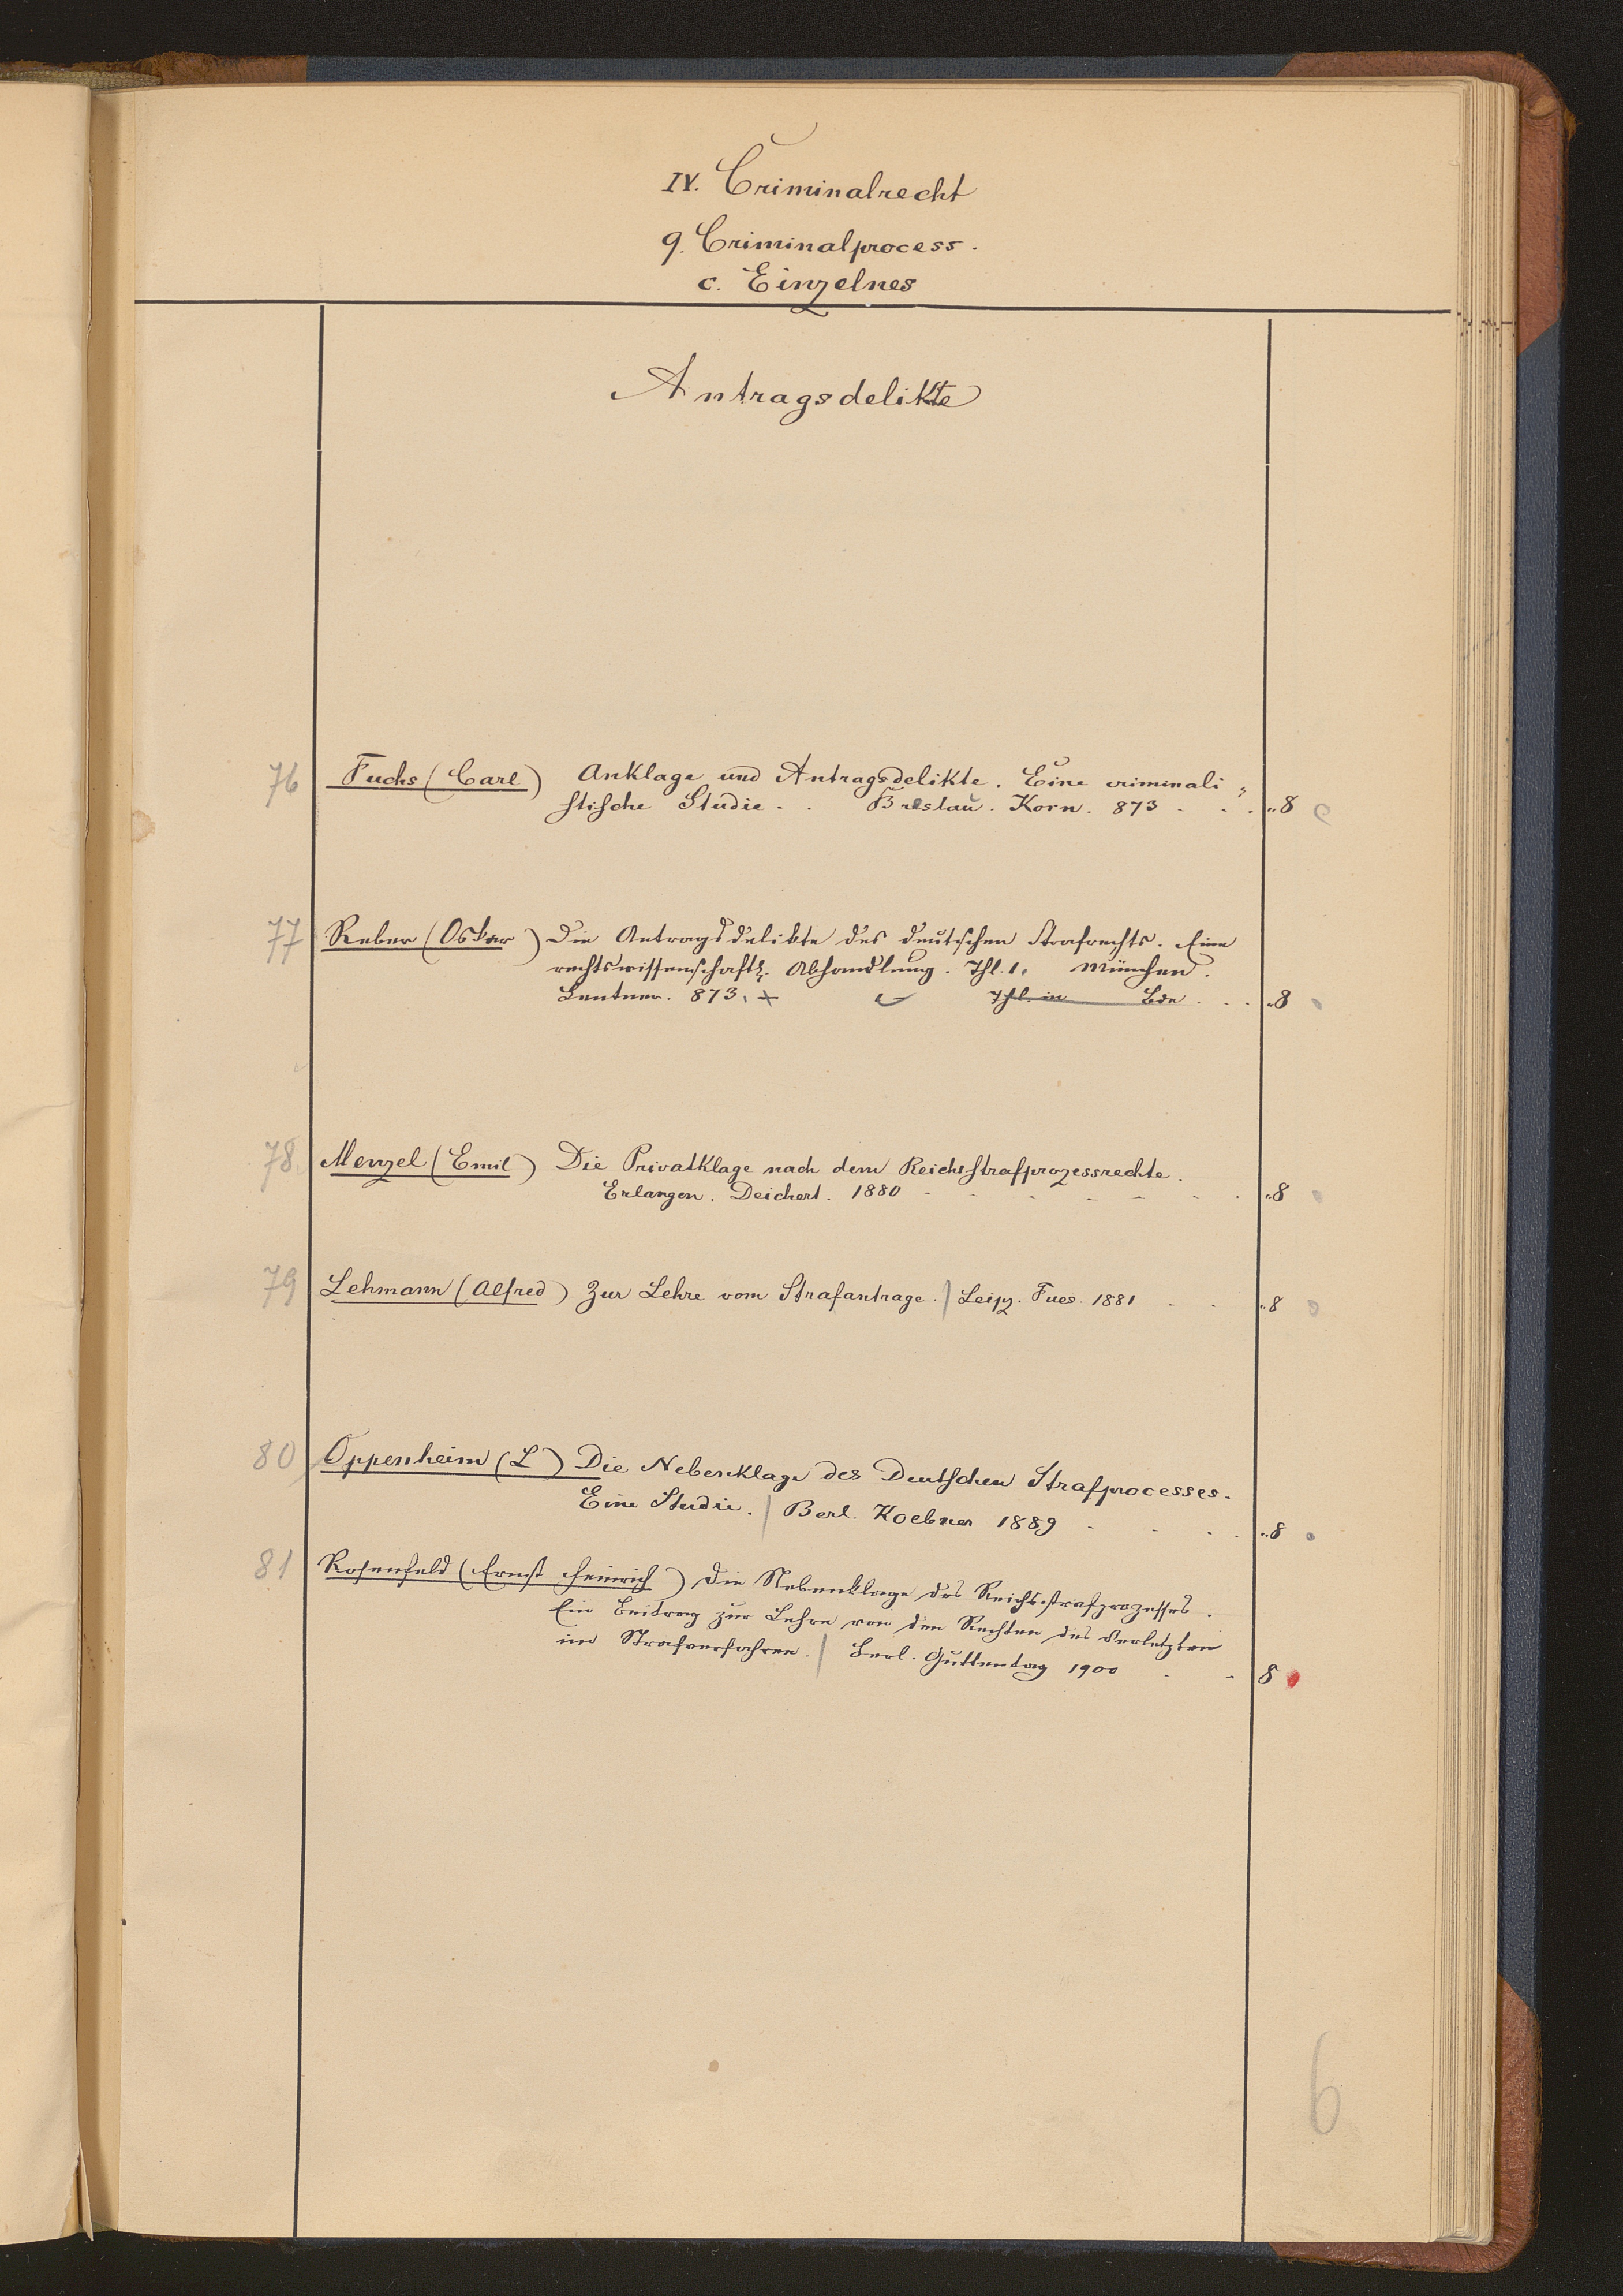 IV. Criminalrecht
9. Criminalprocess.
c. Einzelnes
Antragsdelikte
76 Fuchs (Carl) Anklage und Antragsdelikte. Eine criminali„
stische Studie. . Breslau. Korn. 873 . . . „8
77 Reber (Oskar) Die Antragsdelikte des deutschen Strafrechts. Eine
rechtswissenschaftl. Abhandlung. Thl. 1. München.
Lentner. 873. + Thl. in Bde . . . „8
78. Menzel (Emil) Die Privatklage nach dem Reichsstrafprozessrechte.
Erlangen. Deichert. 1880 - - - - - - . „8
79 Lehmann (Alfred) Zur Lehre vom Strafantrage. | Leipz. Fues. 1881 . . „8
80 Oppenheim (L) Die Nebenklage des Deutschen Strafprocesses.
Eine Studie. | Berl. Koebner 1889 . . . . „8
81 Rosenfeld (Ernst Heinrich) Die Nebenklage des Reichsstrafprozesses.
Ein Beitrag zur Lehre von den Rechten des Verletzten
im Strafverfahren. | Berl. Guttentag 1900 . - 8
6